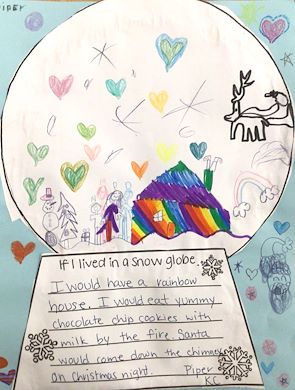 PIPER
If I lived in a snow globe.
I would have a rainbow
house. I would eat yummy
chocolate chip cookies with
milk by the fire. Santa
would come down the chimney
on Christmas night. Piper
KC